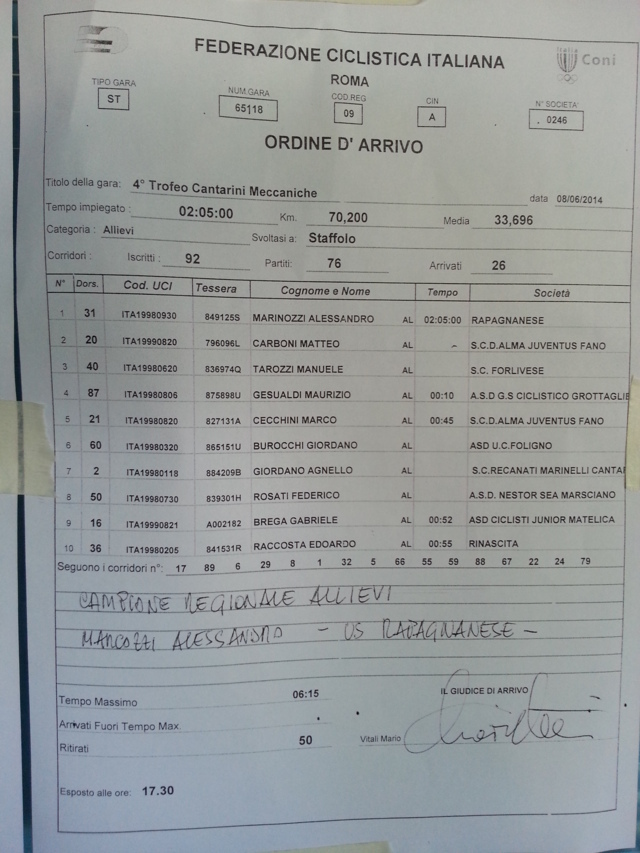 FEDERAZIONE CICLISTICA ITALIANA
Italia Coni
ROMA
TIPO GARA NUM.GARA COD.REG CIN N° SOCIETA'
ST 65118 09 A . 0246
ORDINE D' ARRIVO
Titolo della gara: 4° Trofeo Cantarini Meccaniche data 08/06/2014
Tempo impiegato : 02:05:00 Km. 70,200 Media 33,696
Categoria : Allievi Svoltasi a: Staffolo
Corridori : Iscritti : 92 Partiti: 76 Arrivati 26
N° Dors. Cod. UCI Tessera Cognome e Nome Tempo Società
1 31 ITA19980930 849125S MARINOZZI ALESSANDRO AL 02:05:00 RAPAGNANESE
2 20 ITA19990820 796096L CARBONI MATTEO AL S.C.D.ALMA JUVENTUS FANO
3 40 ITA19980620 836974Q TAROZZI MANUELE AL S.C. FORLIVESE
4 87 ITA19980806 875898U GESUALDI MAURIZIO AL 00:10 A.S.D G.S CICLISTICO GROTTAGLIE
5 21 ITA19980820 827131A CECCHINI MARCO AL 00:45 S.C.D.ALMA JUVENTUS FANO
6 60 ITA19980320 865151U BUROCCHI GIORDANO AL ASD U.C.FOLIGNO
7 2 ITA19980118 884209B GIORDANO AGNELLO AL S.C.RECANATI MARINELLI CANTA
8 50 ITA19980730 839301H ROSATI FEDERICO AL A.S.D. NESTOR SEA MARSCIANO
9 16 ITA19990821 A002182 BREGA GABRIELE AL 00:52 ASD CICLISTI JUNIOR MATELICA
10 36 ITA19980205 841531R RACCOSTA EDOARDO AL 00:55 RINASCITA
Seguono i corridori n°: 17 89 6 29 8 1 32 5 66 55 59 88 67 22 24 79
CAMPIONE REGIONALE ALLIEVI
MARCOZZI ALESSANDRO - US RAPAGNANESE -
Tempo Massimo 06:15 IL GIUDICE DI ARRIVO
Arrivati Fuori Tempo Max.
Ritirati 50 Vitali Mario
Esposto alle ore: 17.30